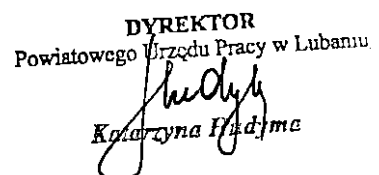 DYREKTOR
Powiatowego Urzędu Pracy w Lubaniu
Katarzyna Hudyma